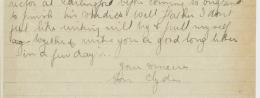 victor at Earlingford before coming to England
to finish his studies. Well Father I don't
just like writing till try & pull my self
together & write you a good long letter
in a few days.
Your sincere
Son Clyde